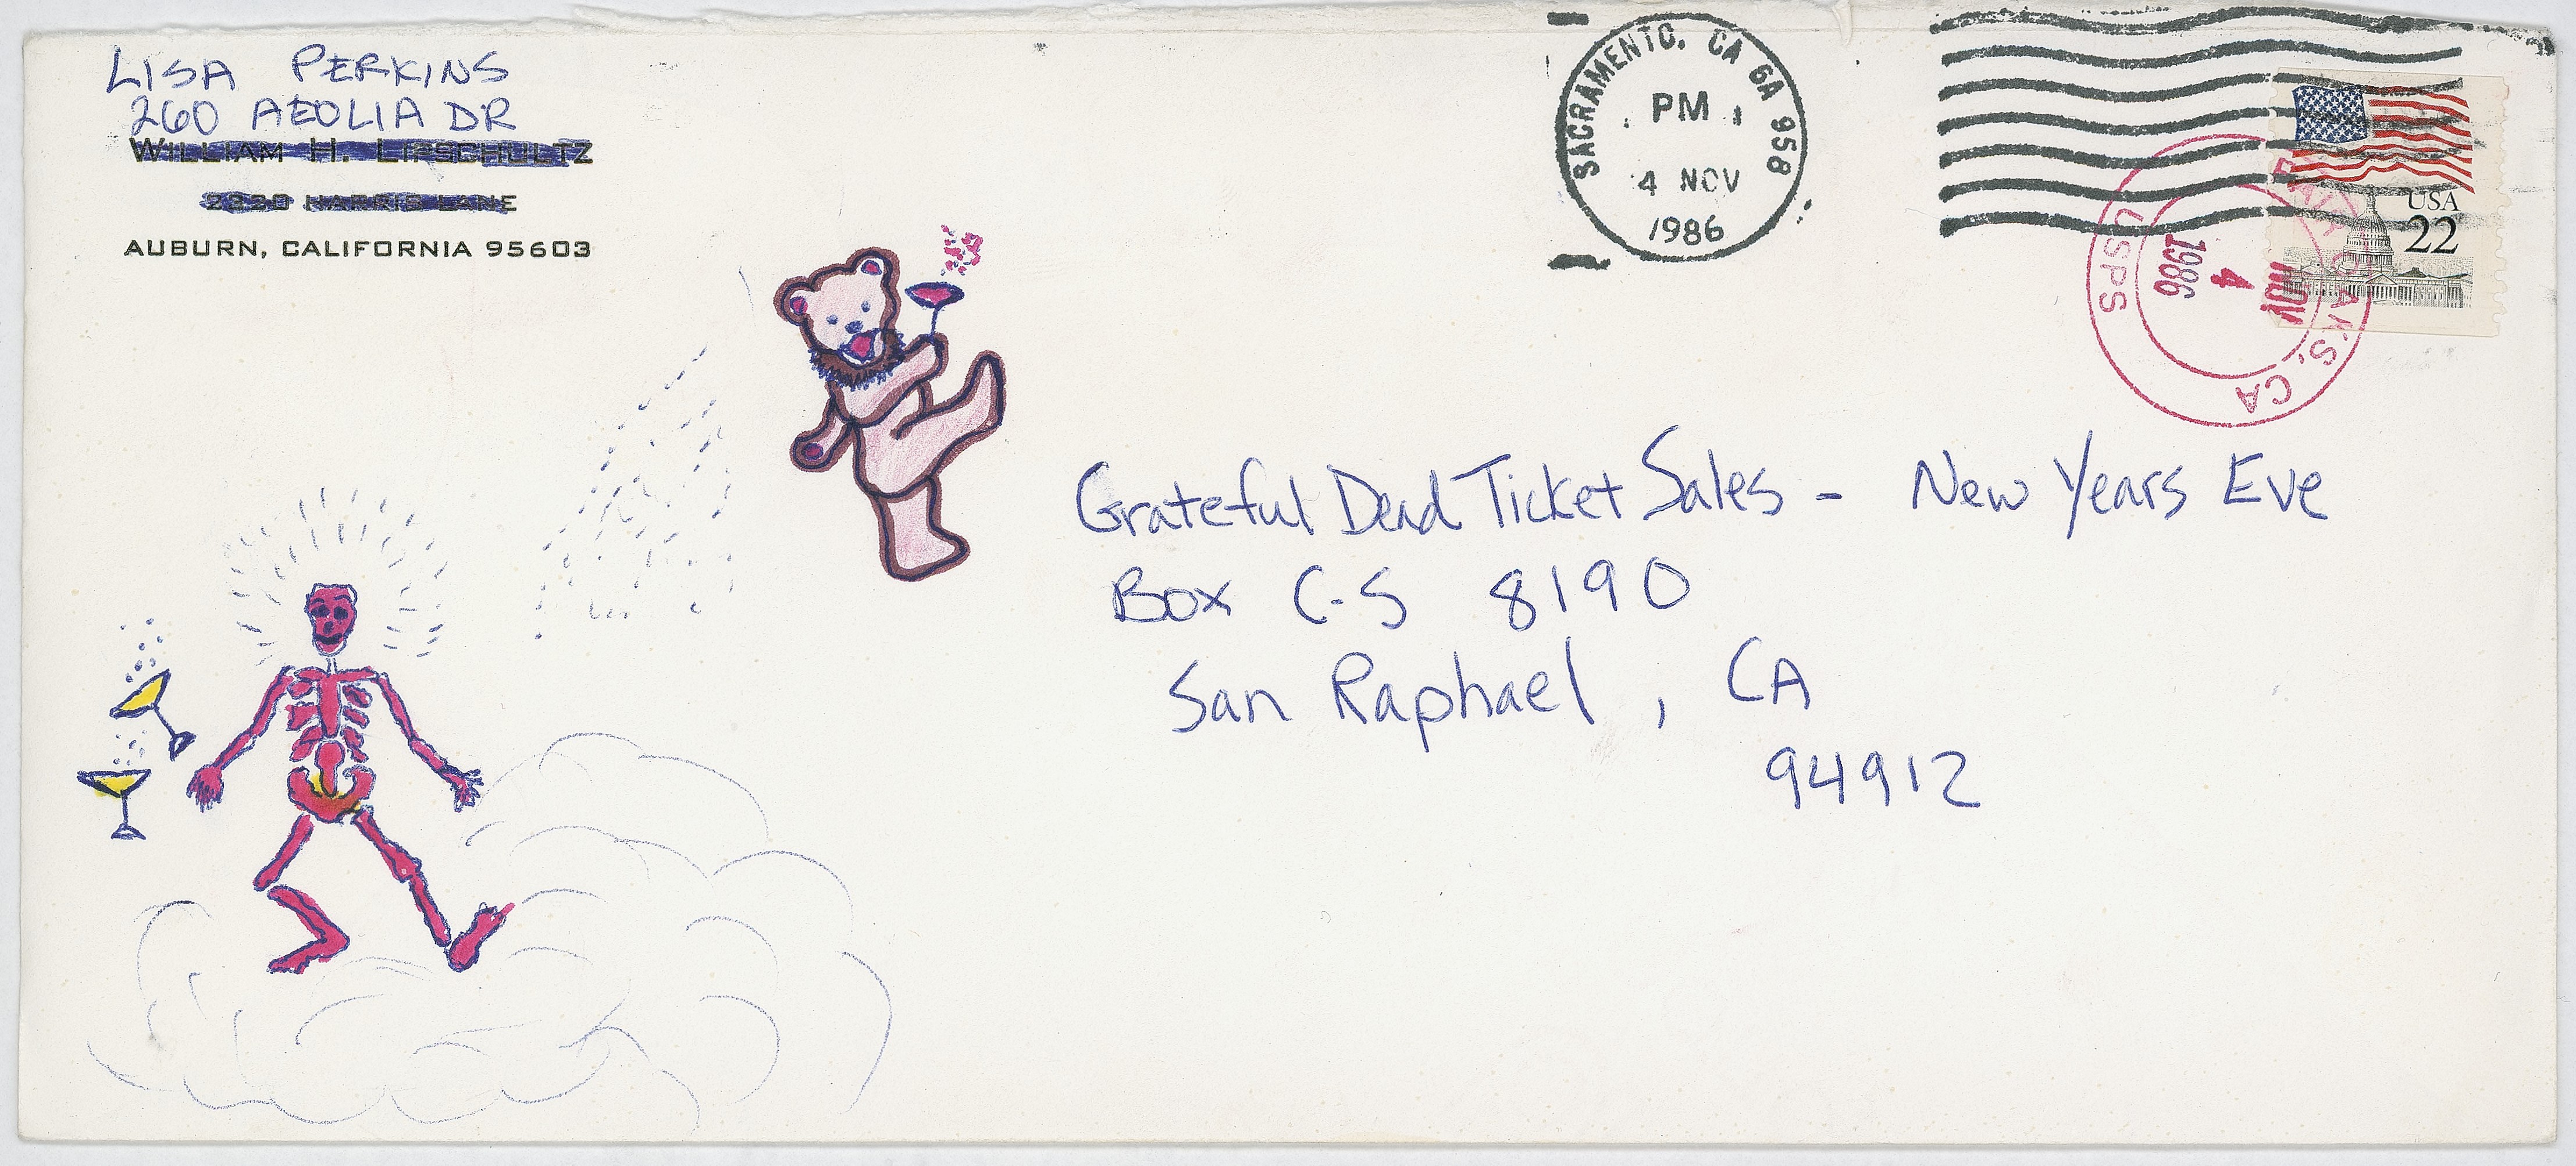 LISA PERKINS
260 AEOLIA DR
WILLIAM H. LIPSCHULTZ
2230 HARRIS LANE
AUBURN, CALIFORNIA 95603
SACRAMENTO, CA GA 958
PM
4 NOV
1986
USA
22
FAIR OAKS, CA
USPS
NOV
4
1986
Grateful Dead Ticket Sales - New Years Eve
Box C-S 8190
San Raphael, CA
94912